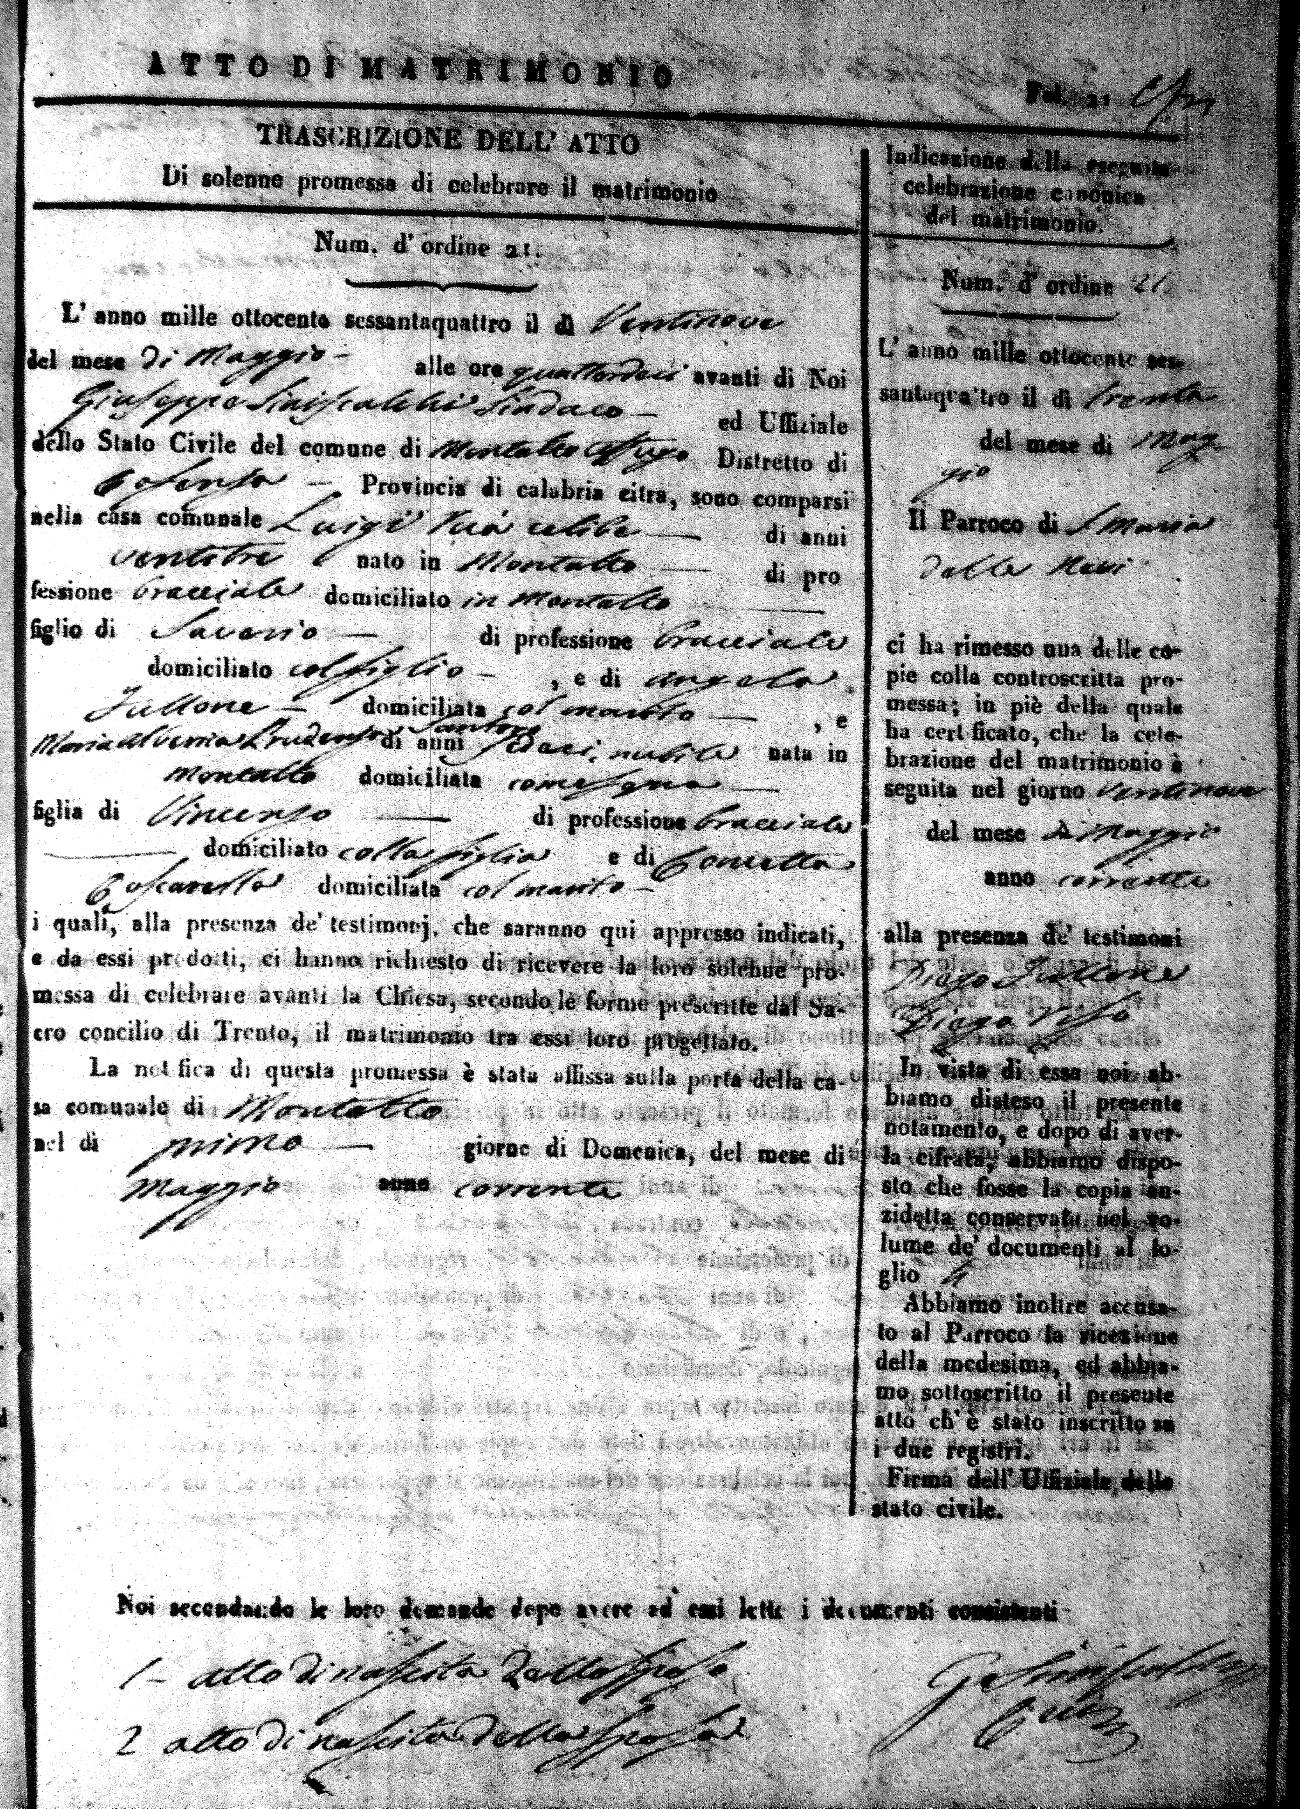 ATTO DI MATRIMONIO
Fol. 21
TRASCRIZIONE DELL' ATTO
Di solenne promessa di celebrare il matrimonio
Num. d' ordine 21.
L' anno mille ottocento sessantaquattro il dì Ventinove
del mese di Maggio — alle ore quattordeci avanti di Noi
Giuseppe Siniscalchi Sindaco — ed Uffiziale
dello Stato Civile del comune di Montalto Uffugo Distretto di
Cosenza — Provincia di calabria citra, sono comparsi
nella casa comunale Luigi celibe — di anni
ventitre nato in Montalto — di pro
fessione bracciale domiciliato in Montalto
figlio di Saverio — di professione bracciale
domiciliato col figlio — , e di Angela
Fullone — domiciliata col marito — , e
Maria Prudenza Santoro di anni sedeci, nubile nata in
Montalto domiciliata come sopra —
figlia di Vincenzo — di professione bracciale
— domiciliato colla figlia e di Concetta
Coscarella domiciliata col marito —
i quali, alla presenza de' testimonj, che saranno qui appresso indicati,
e da essi prodotti, ci hanno richiesto di ricevere la loro solenne pro-
messa di celebrare avanti la Chiesa, secondo le forme prescritte dal Sa-
cro concilio di Trento, il matrimonio tra essi loro progettato.
La notifica di questa promessa è stata affissa sulla porta della ca-
sa comunale di Montalto
nel dì primo — giorno di Domenica, del mese di
Maggio anno corrente
Indicazione della eseguita
celebrazione canonica
del matrimonio.
Num. d' ordine 21.
L' anno mille ottocento ses-
santaquattro il dì trenta
del mese di Mag
gio
Il Parroco di S. Maria
della Nevi
ci ha rimesso una delle co-
pie colla controscritta pro-
messa; in piè della quale
ha certificato, che la cele-
brazione del matrimonio è
seguita nel giorno ventinove
del mese di Maggio
anno corrente
alla presenza de' testimoni
Diego Fullone
Diego
In vista di essa noi ab-
biamo disteso il presente
notamento, e dopo di aver-
la cifrata, abbiamo dispo-
sto che fosse la copia an-
zidetta conservata nel vo-
lume de' documenti al fo-
glio 4
Abbiamo inoltre accusa-
to al Parroco la ricezione
della medesima, ed abbia-
mo sottoscritto il presente
atto ch' è stato inscritto su
i due registri.
Firma dell' Uffiziale dello
stato civile.
Noi secondando le loro domande dopo avere ad essi lette i documenti consistenti
1 – atto di nascita dello sposo
2 atto di nascita della sposa